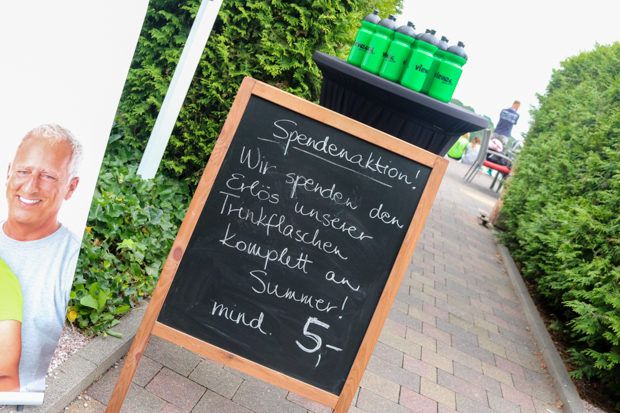 Spendenaktion!
Wir spenden den
Erlös unserer
Trinkflaschen
komplett an
Summer!
mind. 5,-